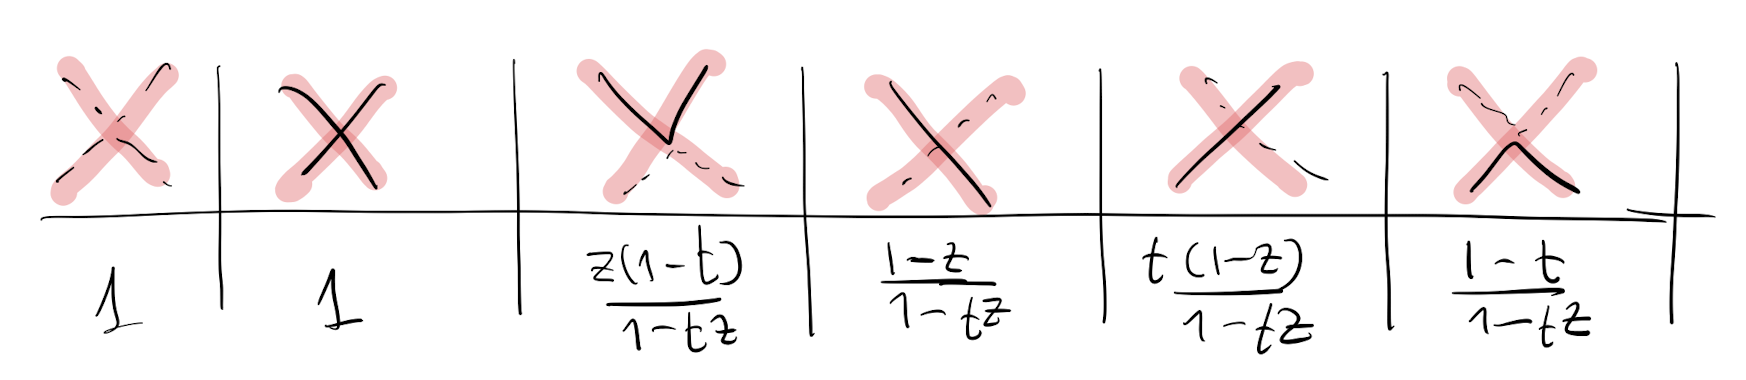 1 1 z(1-t)/1-tz 1-z/1-tz t(1-z)/1-tz 1-t/1-tz